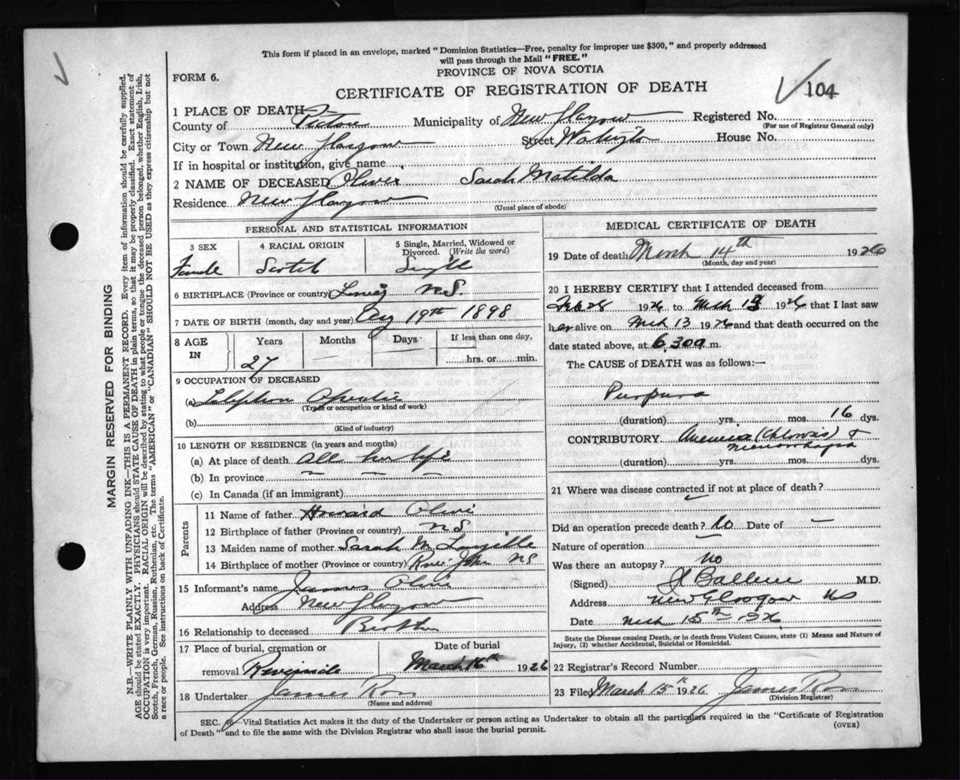 This form if placed in an envelope, marked "Dominion Statistics—Free, penalty for improper use $300," and properly addressed
will pass through the Mail "FREE."
FORM 6.
PROVINCE OF NOVA SCOTIA
CERTIFICATE OF REGISTRATION OF DEATH
104
1 PLACE OF DEATH
County of Pictou Municipality of New Glasgow Registered No.
(For use of Registrar General only)
City or Town New Glasgow Street House No.
If in hospital or institution, give name
2 NAME OF DECEASED Oliver Sarah Matilda
Residence New Glasgow
(Usual place of abode)
PERSONAL AND STATISTICAL INFORMATION
3 SEX 4 RACIAL ORIGIN 5 Single, Married, Widowed or Divorced. (Write the word)
Female Scotch Single
6 BIRTHPLACE (Province or country) N.S.
7 DATE OF BIRTH (month, day and year) 19th 1898
8 AGE IN Years Months Days If less than one day,
27 hrs. or min.
9 OCCUPATION OF DECEASED
(a)
(Trade or occupation or kind of work)
(b)
(Kind of industry)
10 LENGTH OF RESIDENCE (in years and months)
(a) At place of death All her life
(b) In province
(c) In Canada (if an immigrant)
Parents
11 Name of father Howard
12 Birthplace of father (Province or country) N.S.
13 Maiden name of mother Sarah M
14 Birthplace of mother (Province or Country) River John NS
15 Informant's name James
Address New Glasgow
16 Relationship to deceased Brother
17 Place of burial, cremation or removal Riverside Date of burial March 16th 1926
18 Undertaker James Ross
(Name and address)
MEDICAL CERTIFICATE OF DEATH
19 Date of death March 14th 1926
(Month, day and year)
20 I HEREBY CERTIFY that I attended deceased from
1926 to Mch 13 1926 that I last saw
her alive on Mch 13 1926 and that death occurred on the
date stated above, at 6.30 a m.
The CAUSE OF DEATH was as follows:—
Purpura
(duration) yrs. mos. 16 dys.
CONTRIBUTORY
(duration) yrs. mos. dys.
21 Where was disease contracted if not at place of death?
Did an operation precede death? No Date of —
Nature of operation
Was there an autopsy? no
(Signed) M.D.
Address New Glasgow NS
Date Mch 15th 1926
State the Disease causing Death, or in death from Violent Causes, state (1) Means and Nature of
Injury, (2) whether Accidental, Suicidal or Homicidal.
22 Registrar's Record Number
23 Filed March 15th 1926 James Ross
(Division Registrar)
SEC. —Vital Statistics Act makes it the duty of the Undertaker or person acting as Undertaker to obtain all the particulars required in the "Certificate of Registration
of Death" and to file the same with the Division Registrar who shall issue the burial permit.
(OVER)
MARGIN RESERVED FOR BINDING
N.B.—WRITE PLAINLY WITH UNFADING INK—THIS IS A PERMANENT RECORD. Every item of information should be carefully supplied.
AGE should be stated EXACTLY. PHYSICIANS should STATE CAUSE OF DEATH in plain terms, so that it may be properly classified. Exact statement of
OCCUPATION is very important. RACIAL ORIGIN will be described by stating to what people or tongue the deceased person belonged, whether English, Irish,
Scotch, French, German, Russian, Ruthenian, etc. The terms "AMERICAN" or "CANADIAN" SHOULD NOT BE USED as they express citizenship but not
a race or people. See instructions on back of Certificate.